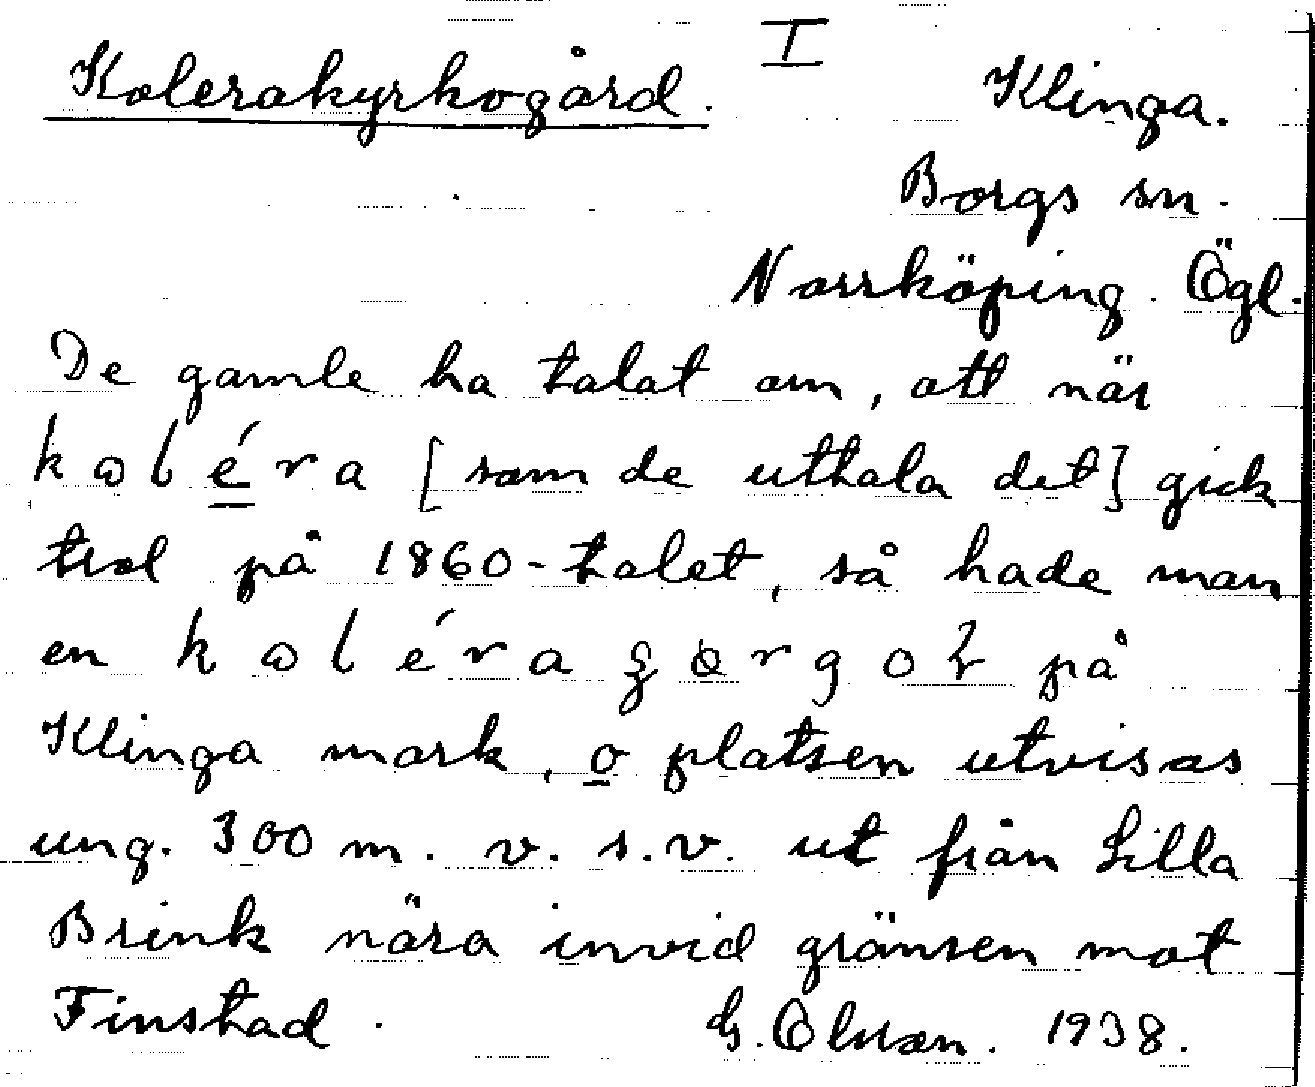 Kolerakyrkogård. I Klinga.
Borgs sn.
Norrköping. Ögl.
De gamle ha talat om, att när
koléra [som de uttala det] gick
trol på 1860-talet, så hade man
en koléragorgoł på
Klinga mark, o platsen utvisas
ung. 300 m. v. s. v. ut från Lilla
Brink nära invid gränsen mot
Finstad. G. Olsson. 1938.